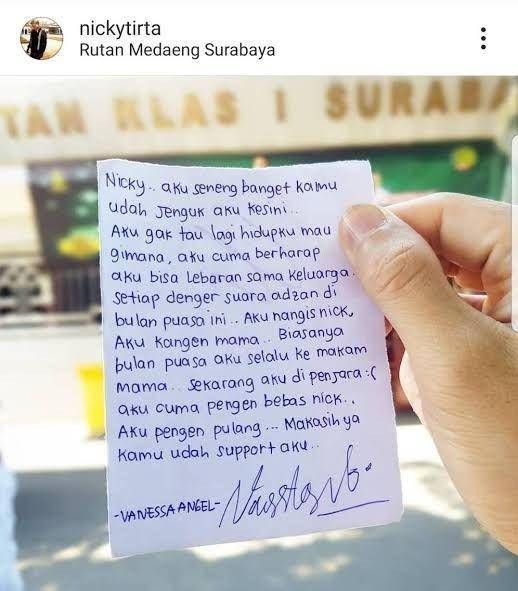 nickytirta
Rutan Medaeng Surabaya
TAN KLAS I SURABA
Nicky.. aku seneng banget kamu
udah jenguk aku kesini..
Aku gak tau lagi hidupku mau
gimana, aku cuma berharap
aku bisa lebaran sama keluarga.
setiap denger suara adzan di
bulan puasa ini.. Aku nangis nick.
Aku kangen mama.. Biasanya
bulan puasa aku selalu ke makam
mama.. sekarang aku di penjara :(
aku cuma pengen bebas nick..
Aku pengen pulang... Makasih ya
kamu udah support aku..
-VANESSA ANGEL-